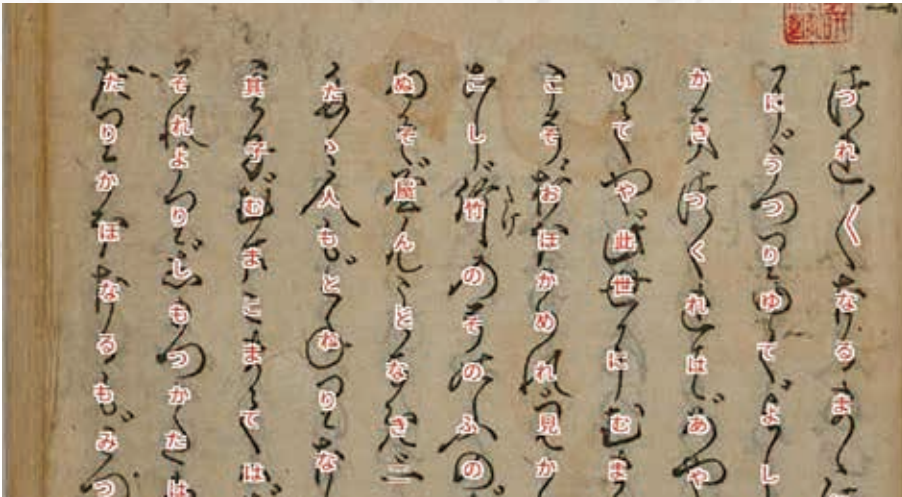 つれ〱なるま
にうつりゆてよし
かきつくれはあや
いてや此世にむま
こそおほかめれ見か
こし竹のそのふの
ぬそ屋んとなき一
たゝ人もとねりな
其子むまこまては
それよりしもつかたは
たりかほなるもみつ